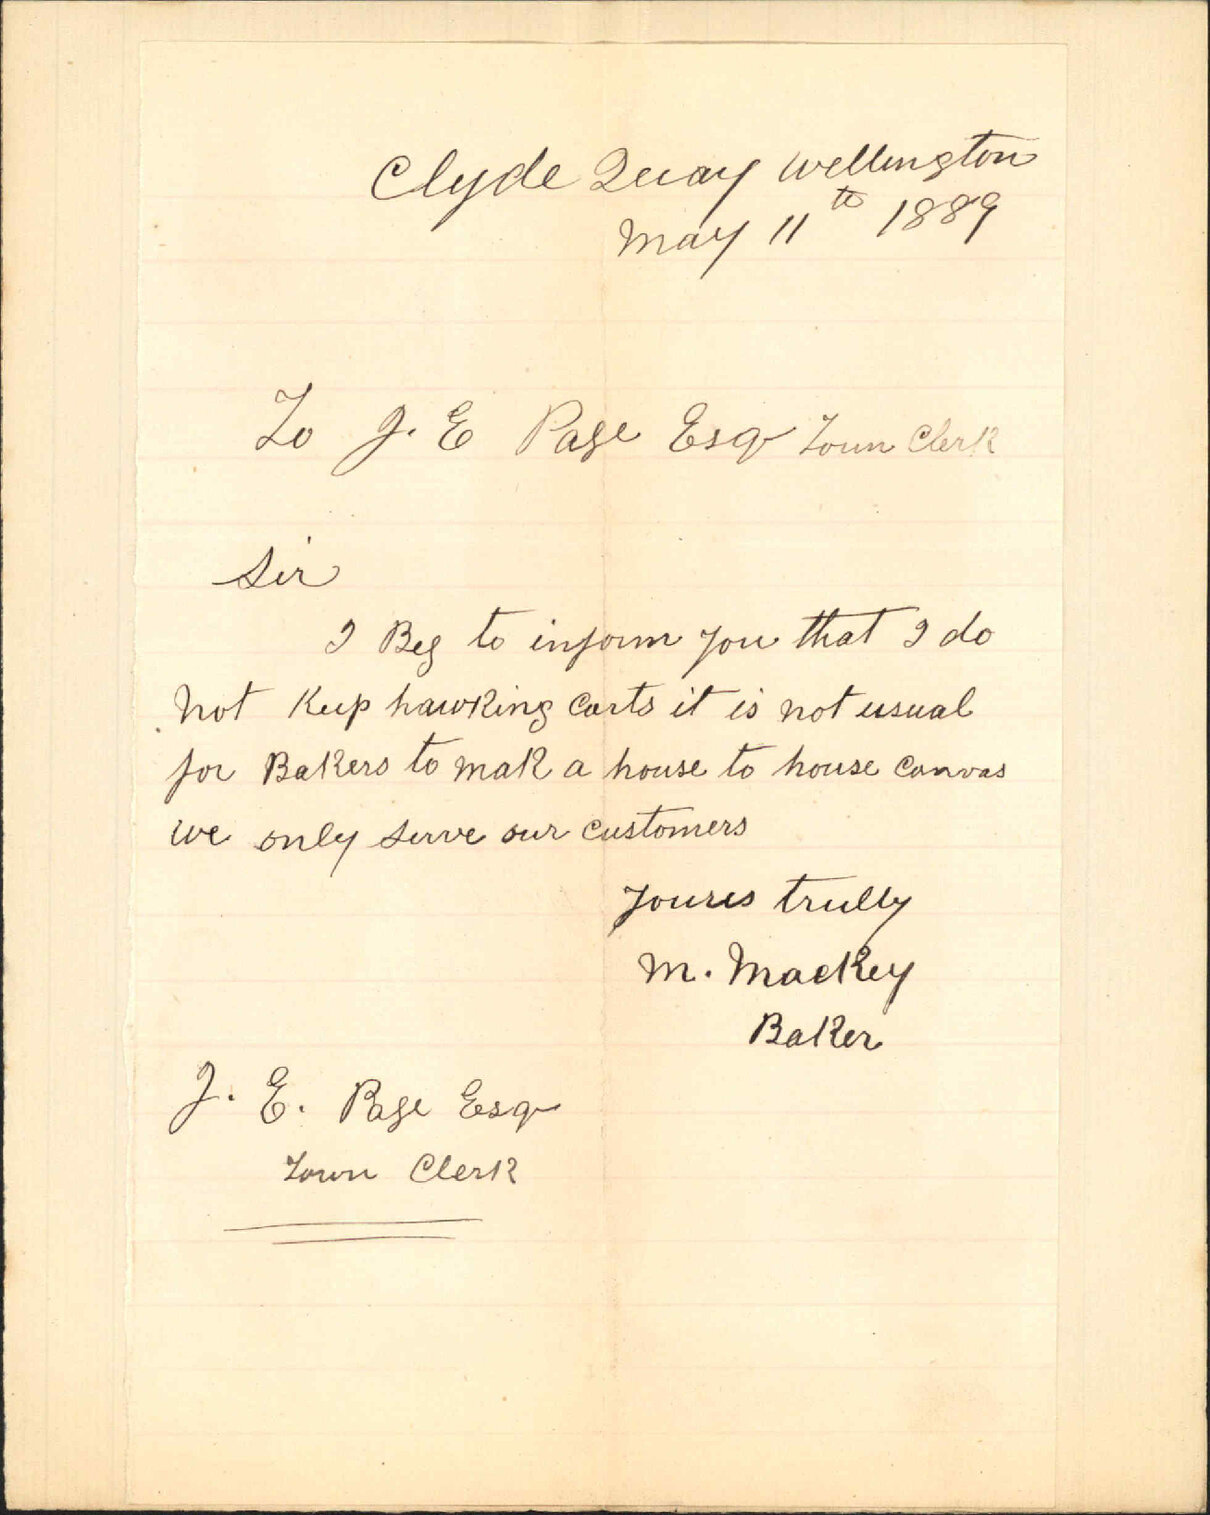 Clyde Quay Wellington
May 11th 1889
To J. E Page Esq Town Clerk
Sir
I Beg to inform you that I do
not Keep hawking carts it is not usual
for Bakers to mak a house to house canvas
we only serve our customers
youres trully
M. Mackey
Baker
J. E. Page Esq
Town Clerk